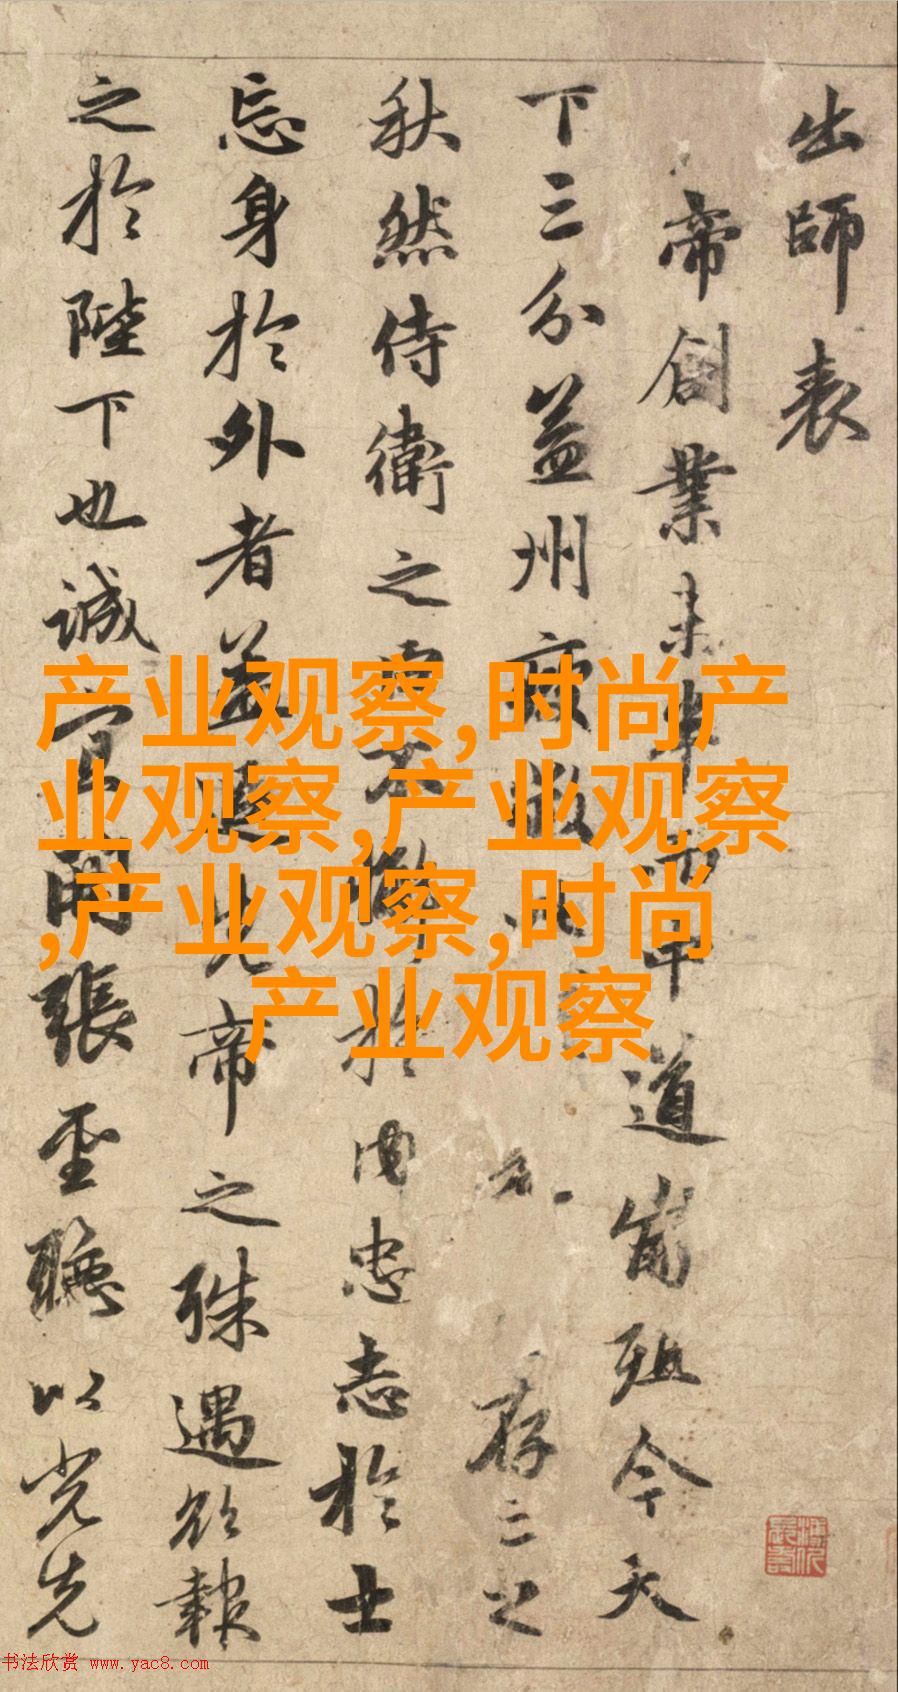 出師表
帝創業未半而中道崩殂今天
下三分益州疲敝此存亡之
秋然侍衛之臣不懈於内忠志於士
忘身於外者蓋追先帝之殊遇欲報
之於陛下也誠宜開張聖聽以光先
产业观察,时尚产
业观察,产业观察
,产业观察,时尚
产业观察
书法欣赏 www.yac8.com